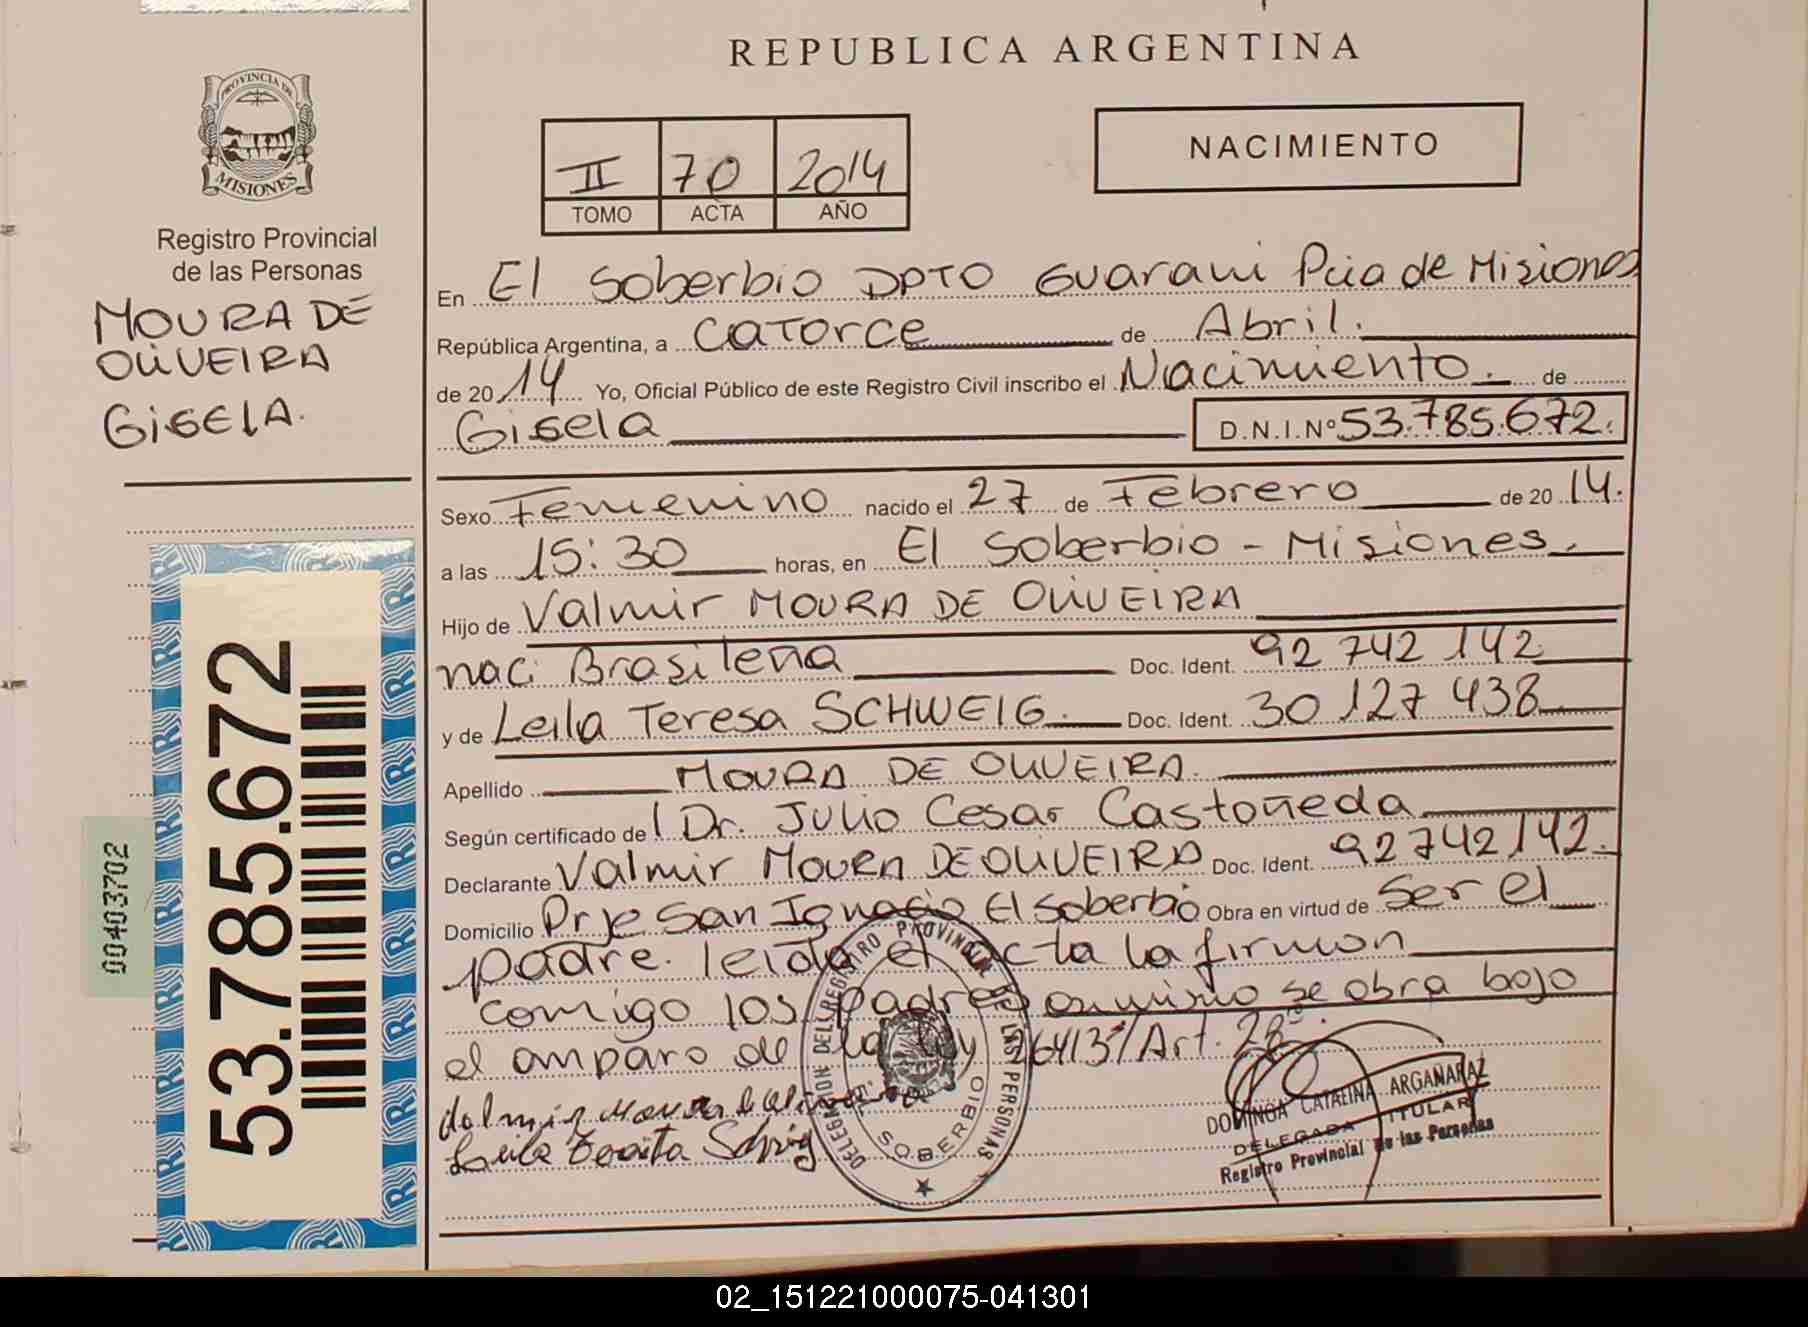 REPUBLICA ARGENTINA
PROVINCIA DE
MISIONES
Registro Provincial
de las Personas
MOURA DE
OLIVEIRA
GISELA.
II 70 2014
TOMO ACTA AÑO
NACIMIENTO
En El Soberbio DPTO Guarani Pcia de Misiones
República Argentina, a Catorce de Abril.
de 2014 Yo, Oficial Público de este Registro Civil inscribo el Nacimiento. de
Gisela D.N.I.Nº 53.785.672.
Sexo Femenino nacido el 27 de Febrero de 2014.
a las 15:30 horas, en El Soberbio - Misiones.
Hijo de Valmir MOURA DE OLIVEIRA
nac: Brasileña Doc. Ident. 92 742 142
y de Leila Teresa SCHWEIG. Doc. Ident. 30 127 438
Apellido MOURA DE OLIVEIRA.
Según certificado de Dr. Julio Cesar Castañeda
Declarante Valmir MOURA DE OLIVEIRA Doc. Ident. 92742142.
Domicilio Prje San Ignacio El Soberbio Obra en virtud de Ser el
padre. leida el acta la firman
comigo los padres asimismo se obra bajo
el amparo de la ley 26413/Art. 28
DELEGACION DEL REGISTRO PROVINCIAL DE LAS PERSONAS
SOBERBIO
DOMINGA CATALINA ARGAÑARAZ
DELEGADA TITULAR
Registro Provincial de las Personas
53.785.672
00403702
02_151221000075-041301